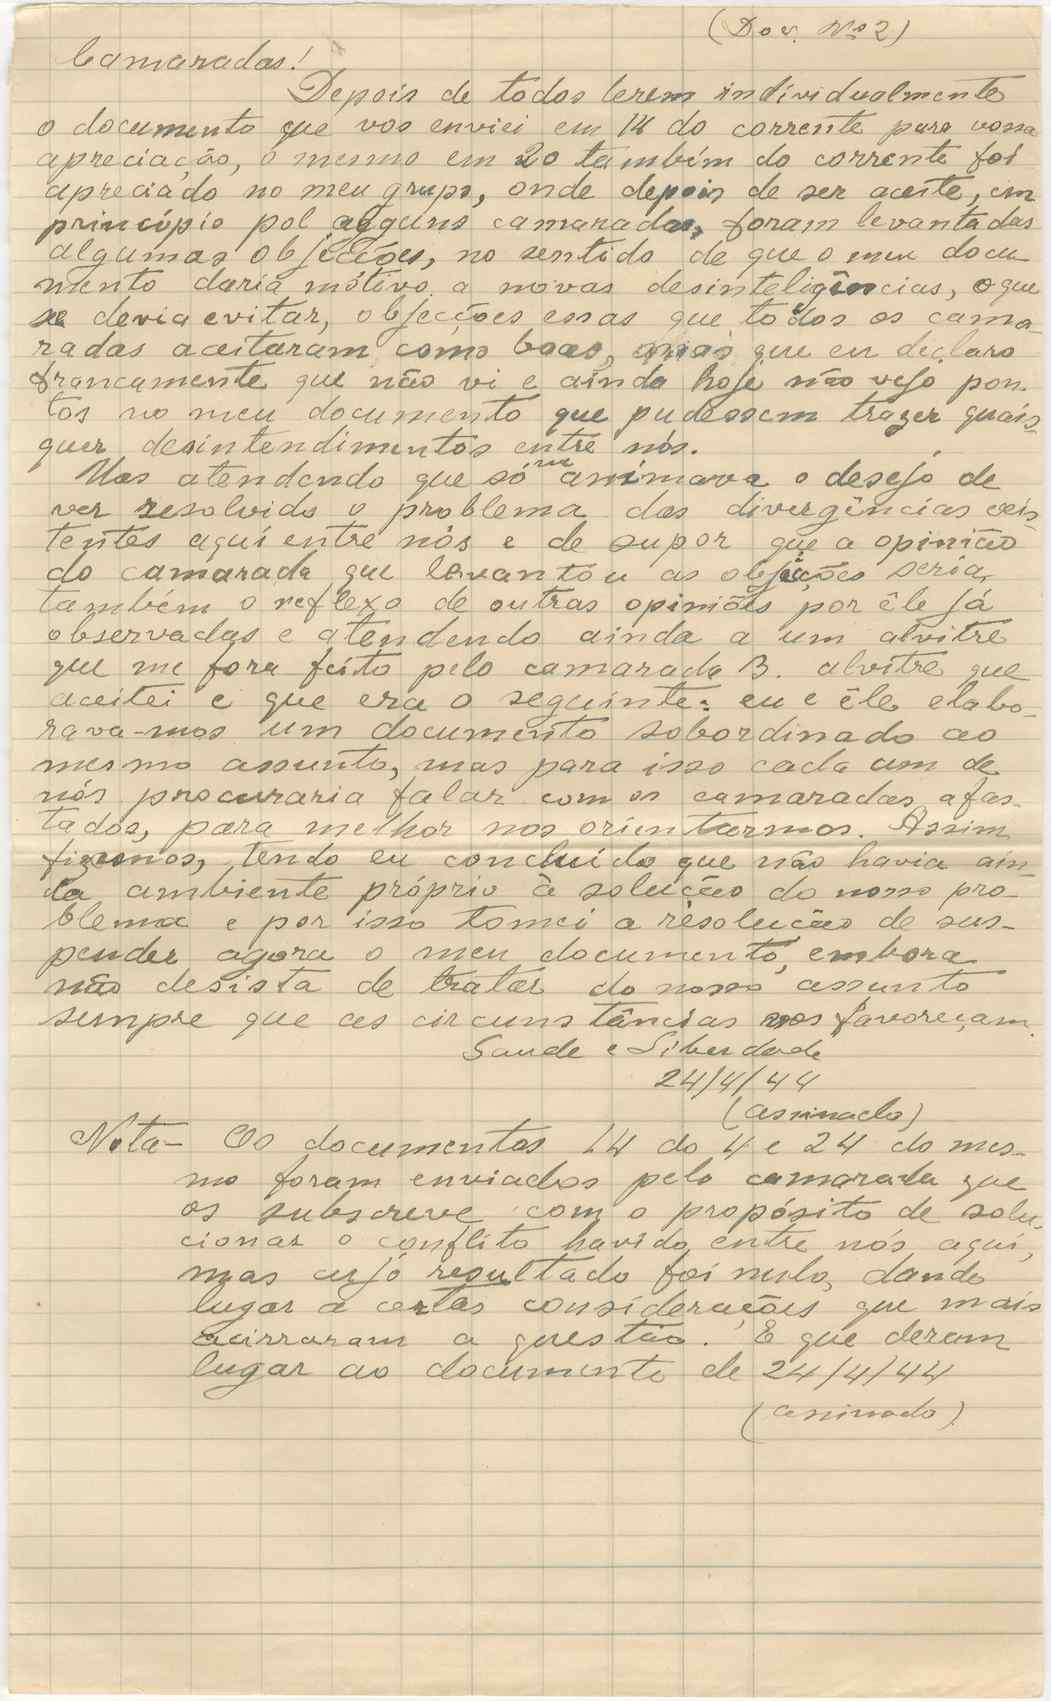 (Doc. Nº 2)
Camaradas!
Depois de todos lerem individualmente
o documento que vos enviei em 14 do corrente para vossa
apreciação, o mesmo em 20 também do corrente foi
apreciado no meu grupo, onde depois de ser aceite, em
princípio pol alguns camaradas, foram levantadas
algumas objecções, no sentido de que o meu docu
mento daria mótivo a novas desinteligências, o que
se devia evitar, objecções essas que todos os cama-
radas aceitaram como boas, mas que eu declaro
francamente que não vi e ainda hoje não vejo pon-
tos no meu documento que pudessem trazer quais-
quer desintendimentos entre nós.
Mas atendendo que só me animava o desejo de
ver resolvido o problema das divergências exis-
tentes aqui entre nós e de supor que a opinião
do camarada que levantou as objeções seria,
também o reflexo de outras opiniões por êle já
observadas e atendendo ainda a um alvitre
que me fora feito pelo camarada B. alvitre que
aceitei e que era o seguinte: eu e êle elabo-
rava-mos um documento sobordinado ao
mesmo assunto, mas para isso cada um de
nós procuraria falar com os camaradas afas-
tados, para melhor nos orientarmos. Assim
fizemos, tendo eu concluído que não havia ain-
da ambiente próprio à solução do nosso pro-
blema e por isso tomei a resolução de sus-
pender agora o meu documento, embora
não desista de tratar do nosso assunto
sempre que as circunstâncias nos favoreçam.
Saude e Liberdade
24/4/44
(assinado)
Nota- Os documentos 14 do 4 e 24 do mes-
mo foram enviados pelo camarada que
os subscreve com o propósito de solu-
cionar o conflito havido entre nós aqui,
mas cujo resultado foi nulo, dando
lugar a certas considerações que mais
acirraram a questão. E que deram
lugar ao documento de 24/4/44
(assinado)